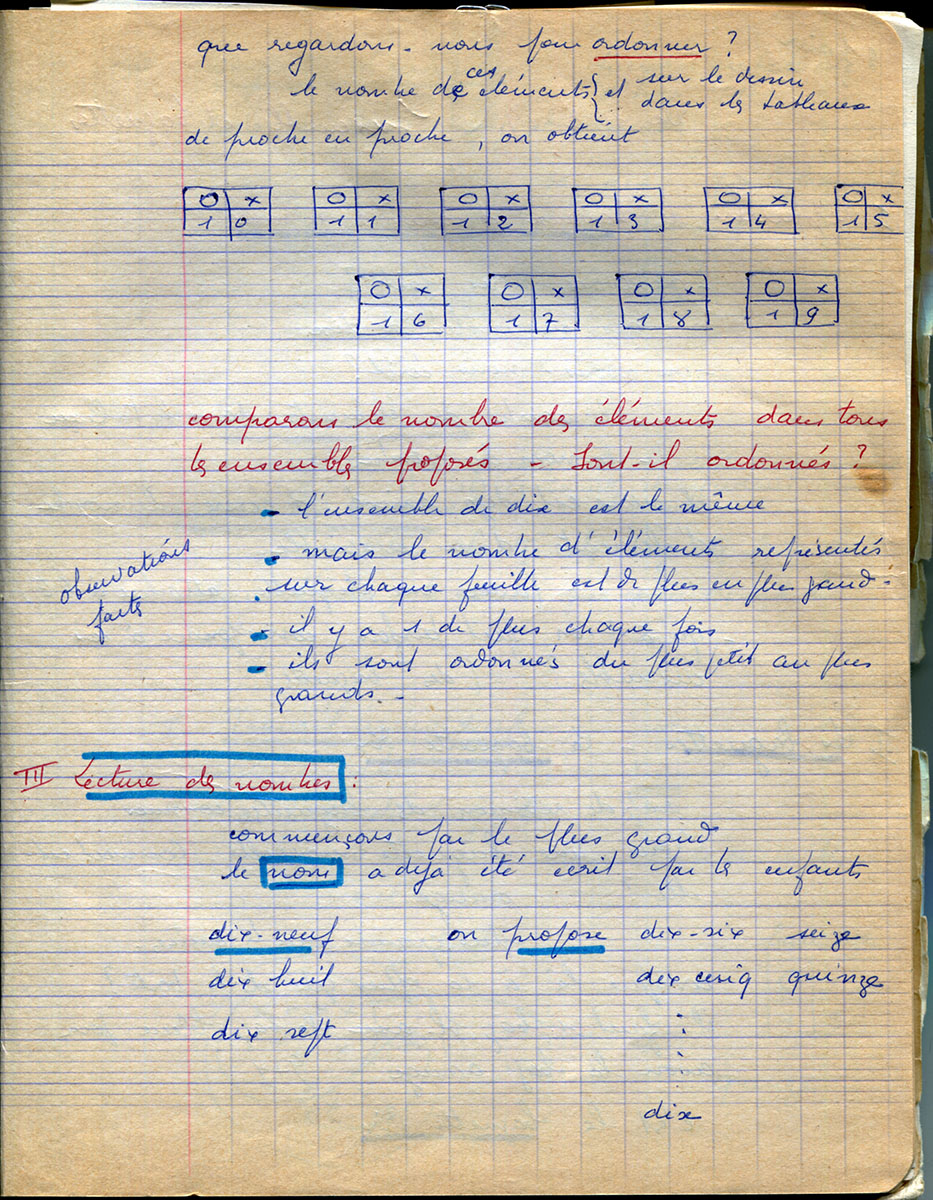 que regardons-nous pour ordonner ?
le nombre de ces éléments et sur le dessin
dans les tableaux
de proche en proche, on obtient
O x O x O x O x O x O x
1 0 1 1 1 2 1 3 1 4 1 5
O x O x O x O x
1 6 1 7 1 8 1 9
comparons le nombre des éléments dans tous
les ensembles proposés - Sont-il ordonnés ?
- l'ensemble de dix est le même
- mais le nombre d'éléments représentés
sur chaque feuille est de plus en plus grand.
observations
faites
- il y a 1 de plus chaque fois
- ils sont ordonnés du plus petit au plus
grands. -
III Lecture des nombres :
commençons par le plus grand
le nom a déjà été écrit par les enfants
dix-neuf on propose dix-six seize
dix huit dix cinq quinze
dix sept :
:
dix